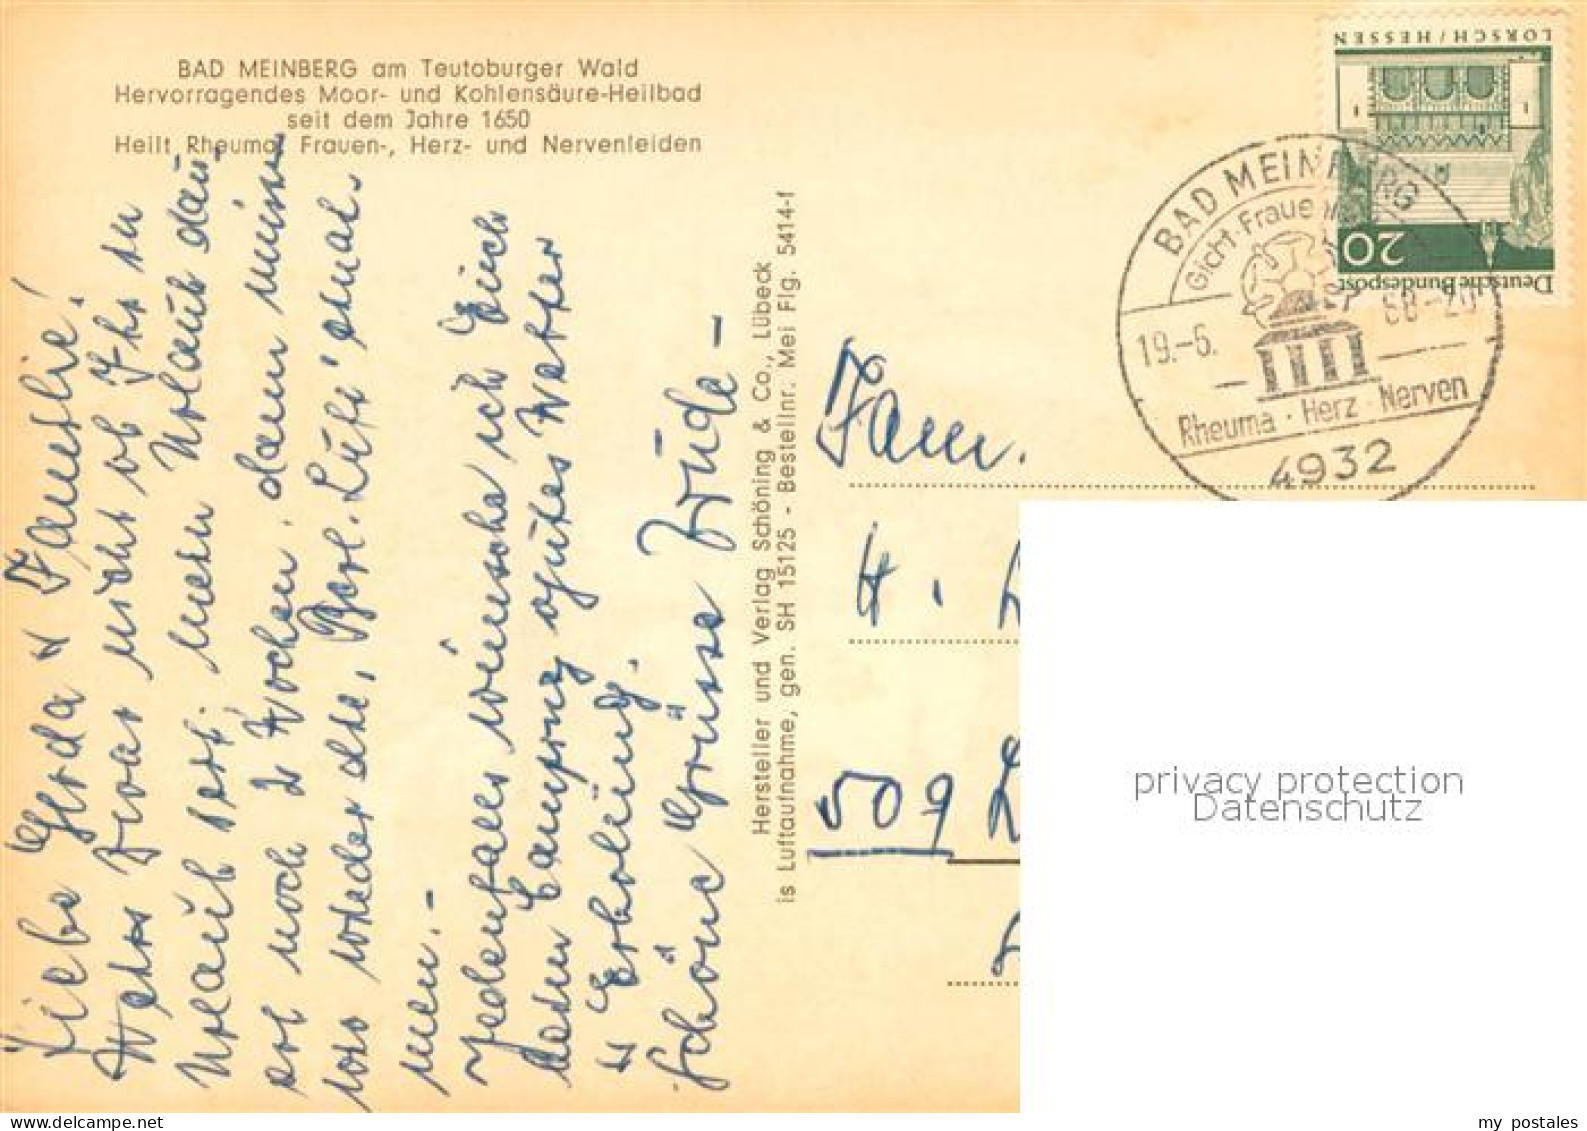 BAD MEINBERG am Teutoburger Wald
Hervorragendes Moor- und Kohlensäure-Heilbad
seit dem Jahre 1650
Heilt Rheuma, Frauen-, Herz- und Nervenleiden
Liebe Gerda & Familie!
Weiss zwar nicht ob Ihr in
Urlaub seit, mein Urlaub dau-
ert noch 2 Wochen, dann müssen
wir wieder ste, Berl. Luft
men.-
Jedenfalls wünsche ich Euch
beim Camping gutes Wetter
u Erholung.
Schöne Grüsse
Hersteller und Verlag Schöning & Co., Lübeck
is Luftaufnahme, gen. SH 15125 - Bestellnr. Mei Flg. 5414-f
Fam.
H.
509
LORSCH/HESSEN
20
Deutsche Bundespost
BAD MEINBERG
Gicht-Frauen
19.-6. 68-20
Rheuma · Herz · Nerven
4932
privacy protection
Datenschutz
delcampe.net
my_postales